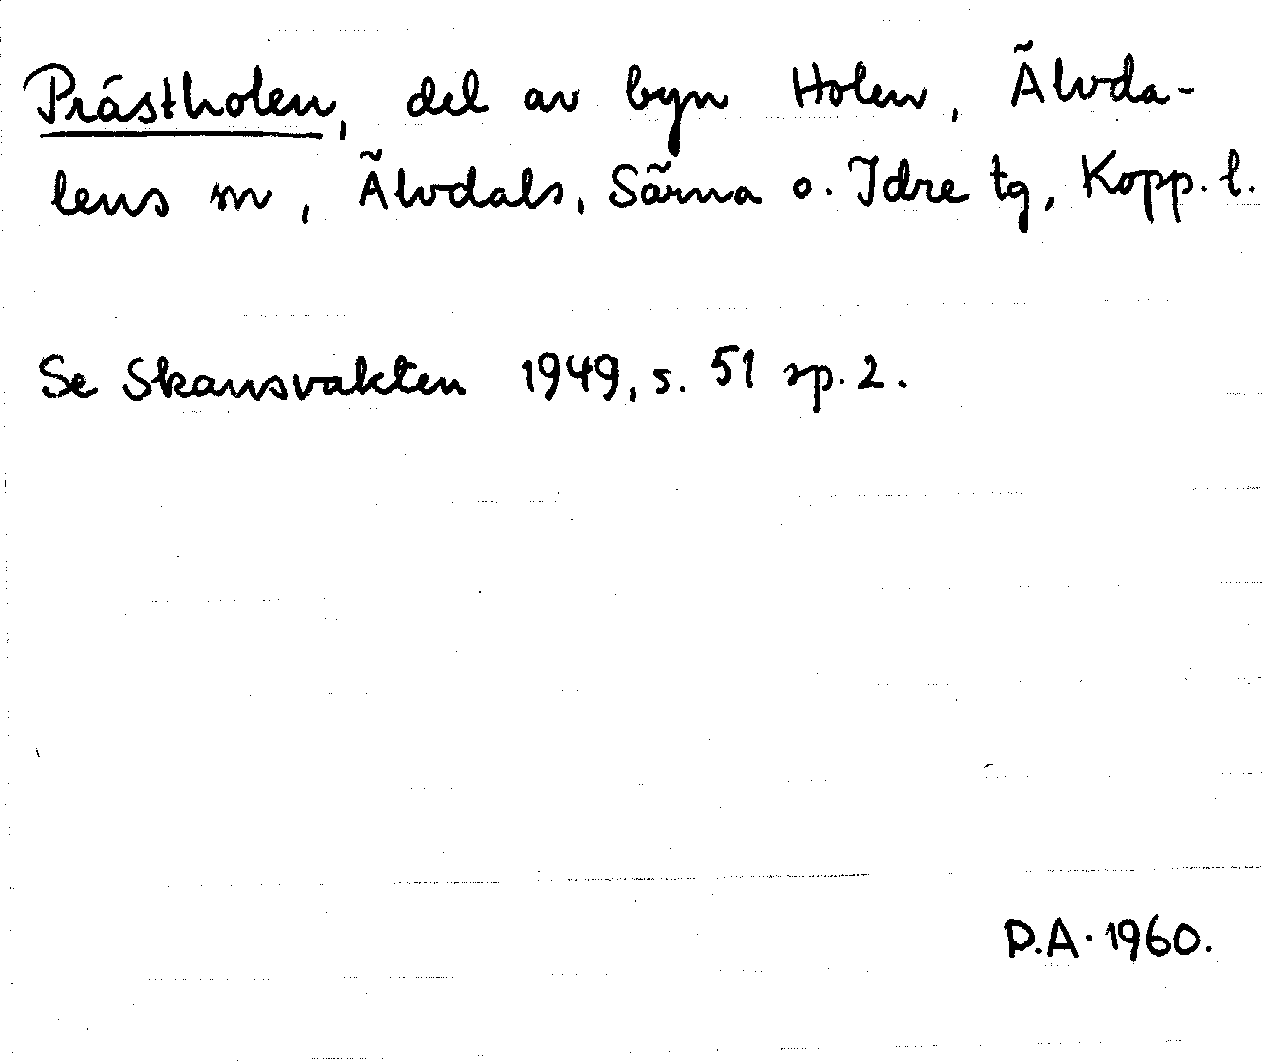 Prästholen, del av byn Holen, Älvda-
lens sn, Älvdals, Särna o. Idre tg, Kopp. l.
Se Skansvakten 1949, s. 51 sp. 2.
D.A. 1960.